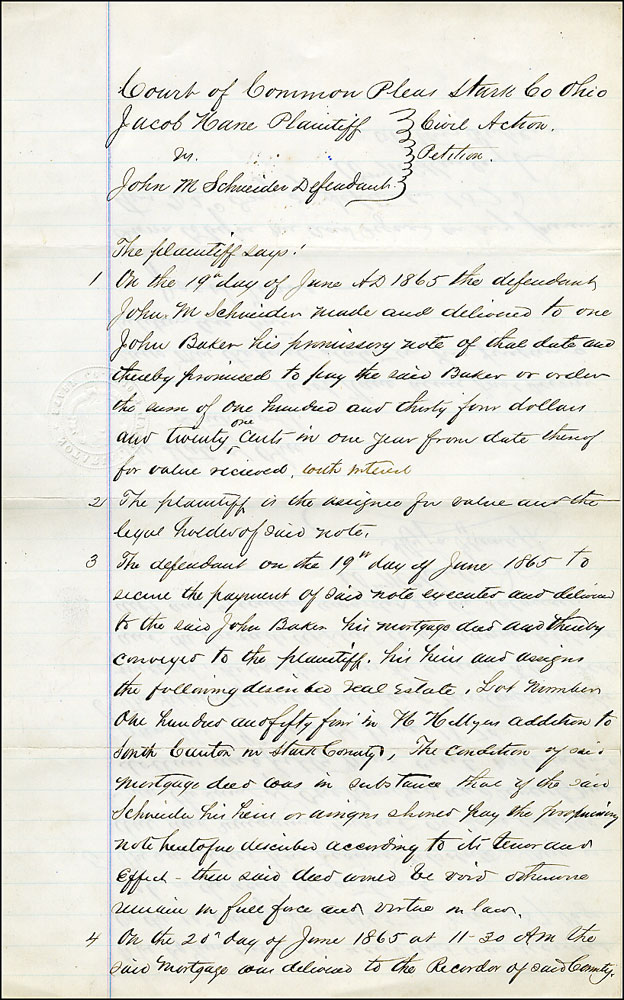 Court of Common Pleas Stark Co Ohio
Jacob Hane Plaintiff } Civil Action.
vs. } Petition.
John M Schneider Defendant
The plaintiff says!
1 On the 19" day of June AD 1865 the defendant
John M Schneider made and delivered to one
John Baker his promissory note of that date and
thereby promised to pay the said Baker or order
the sum of one hundred and thirty four dollars
and twenty one cents in one year from date thereof
for value recieved, with interest
2 The plaintiff is the assignee for value and the
legal holder of said note.
3 The defendant on the 19" day of June 1865 to
secure the payment of said note executed and delivered
to the said John Baker his mortgage deed and thereby
conveyed to the plaintiff. his heirs and assigns
the following described real Estate, Lot Number
One hundred and fifty four in H Hellyers addition to
South Canton in Stark County, The condition of said
mortgage deed was in substance that if the said
Schneider his heirs or assigns should pay the promissory
note heretofore described according to its tenor and
Effect - then said deed would be void otherwise
remain in full force and virtue in law.
4 On the 20" day of June 1865 at 11-30 AM the
said Mortgage was delivered to the Recorder of said County.